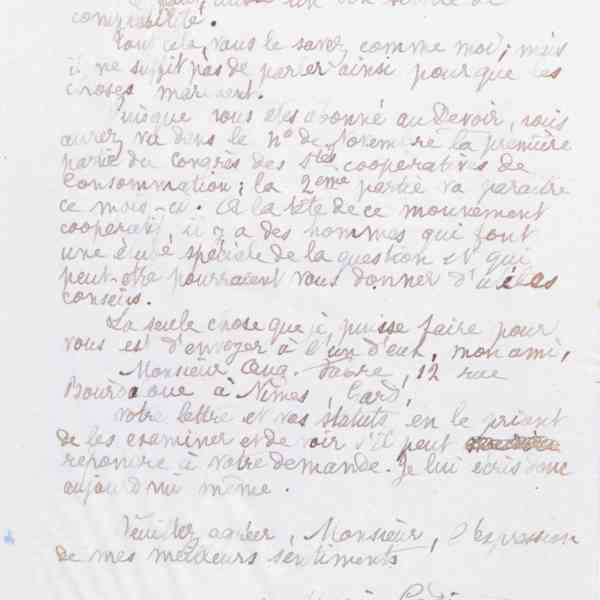 comptabilité.
Tout cela, vous le savez comme moi; mais
il ne suffit pas de parler ainsi pour que les
choses marchent.
Puisque vous êtes abonné au Devoir, vous
aurez vu dans le No de Novembre la première
partie du Congrès des Stés coopératives de
Consommation; la 2eme partie va paraître
ce mois-ci. A la tête de ce mouvement
coopératif, il y a des hommes qui font
une étude spéciale de la question et qui
peut-être pourraient vous donner d'utiles
conseils.
La seule chose que je puisse faire pour
vous est d'envoyer à l'un d'eux, mon ami,
Monsieur Aug. Fabre, 12 rue
Bourdaloue à Nîmes, Gard,
votre lettre et vos statuts en le priant
de les examiner et de voir s'il peut
répondre à votre demande. Je lui écris donc
aujourd'hui même.
Veuillez agréer, Monsieur, l'expression
de mes meilleurs sentiments